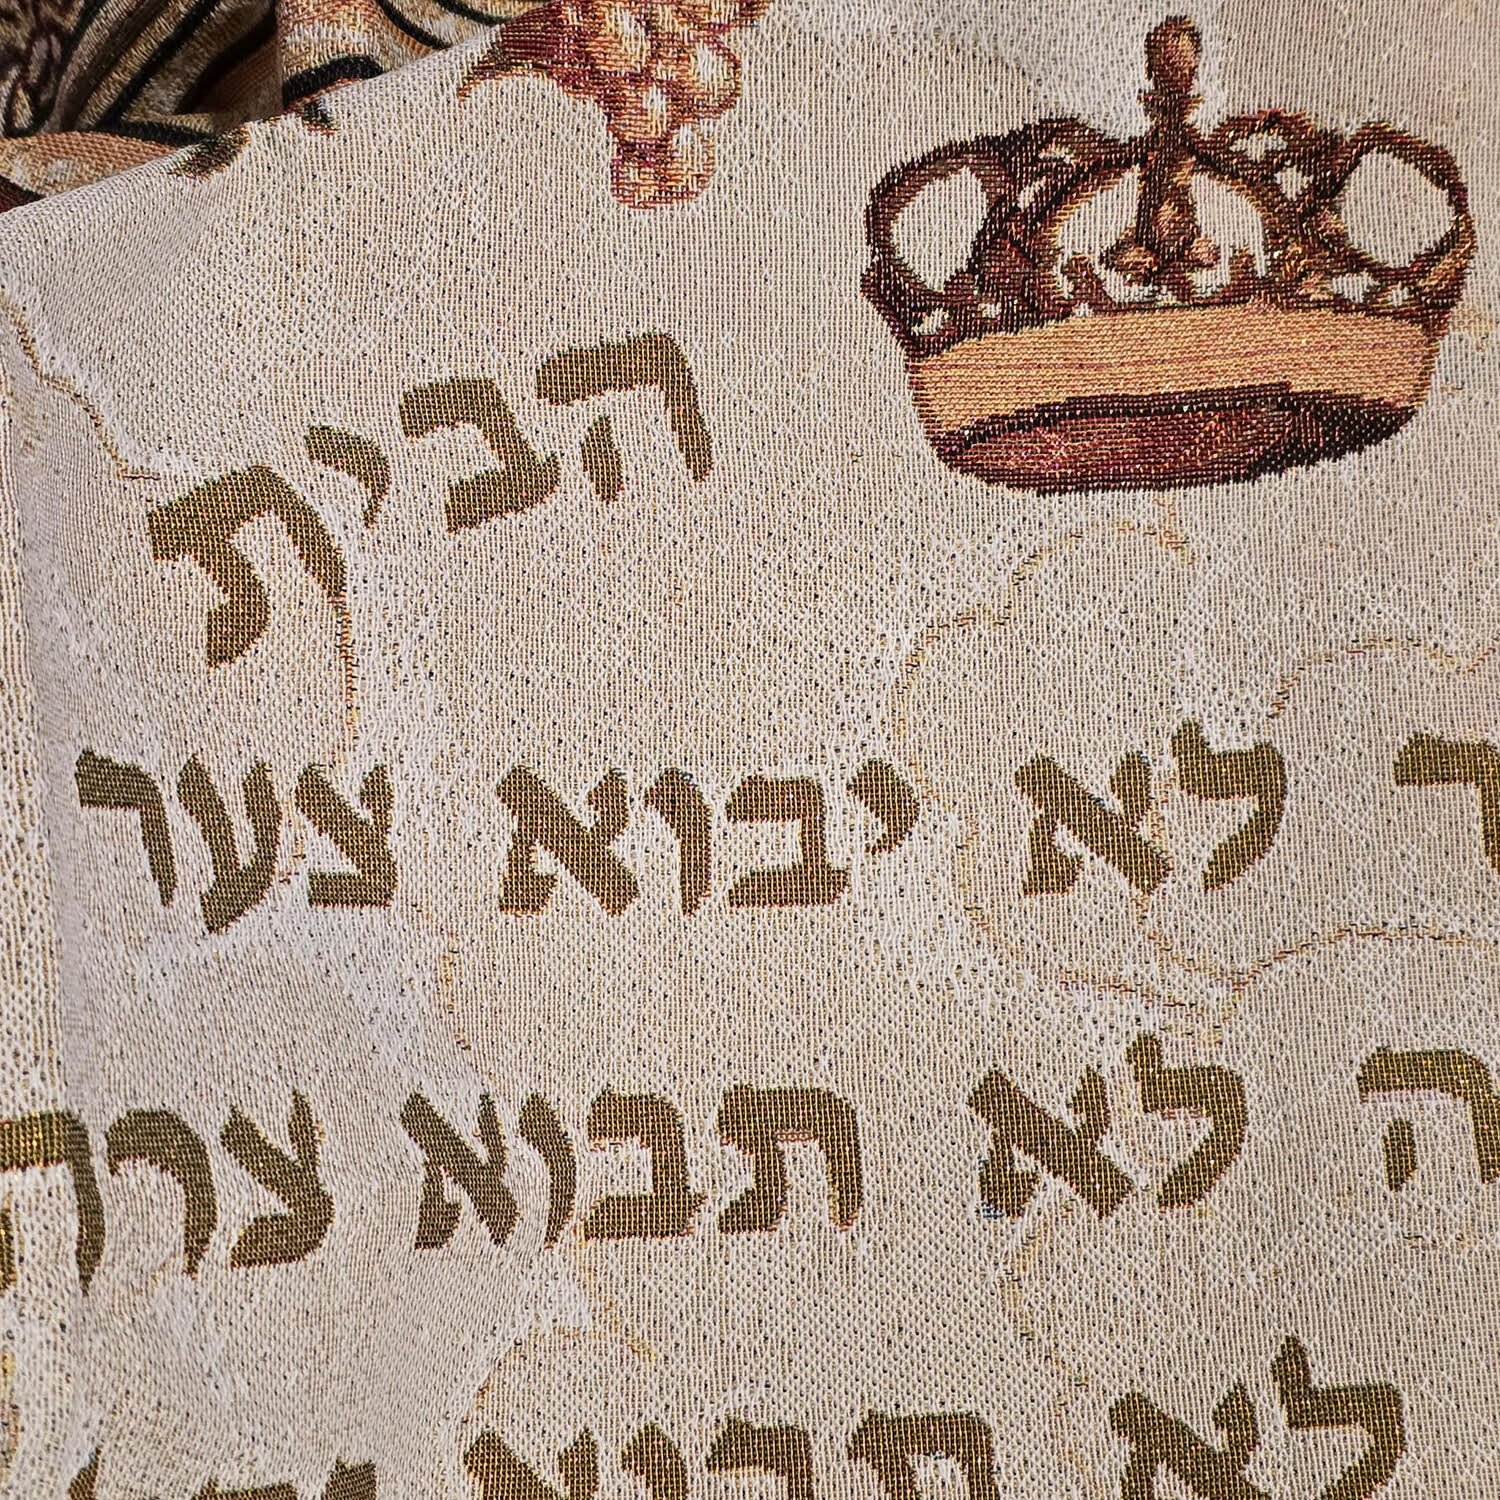 הבית
לא יבוא צער
לא תבוא צרה
לא תבוא